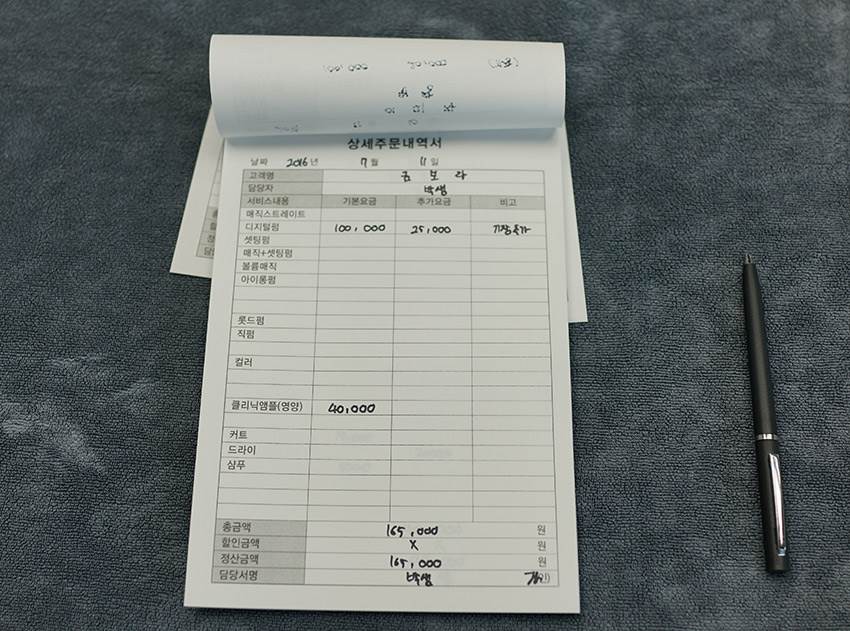 상세주문내역서
날짜 2016년 7월 11일
고객명 금보라
담당자 박쌤
서비스내용 기본요금 추가요금 비고
매직스트레이트
디지털펌 100,000 25,000 기장추가
셋팅펌
매직+셋팅펌
볼륨매직
아이롱펌
롯드펌
직펌
컬러
클리닉앰플(영양) 40,000
커트
드라이
샴푸
총금액 165,000 원
할인금액 X 원
정산금액 165,000 원
담당서명 박쌤